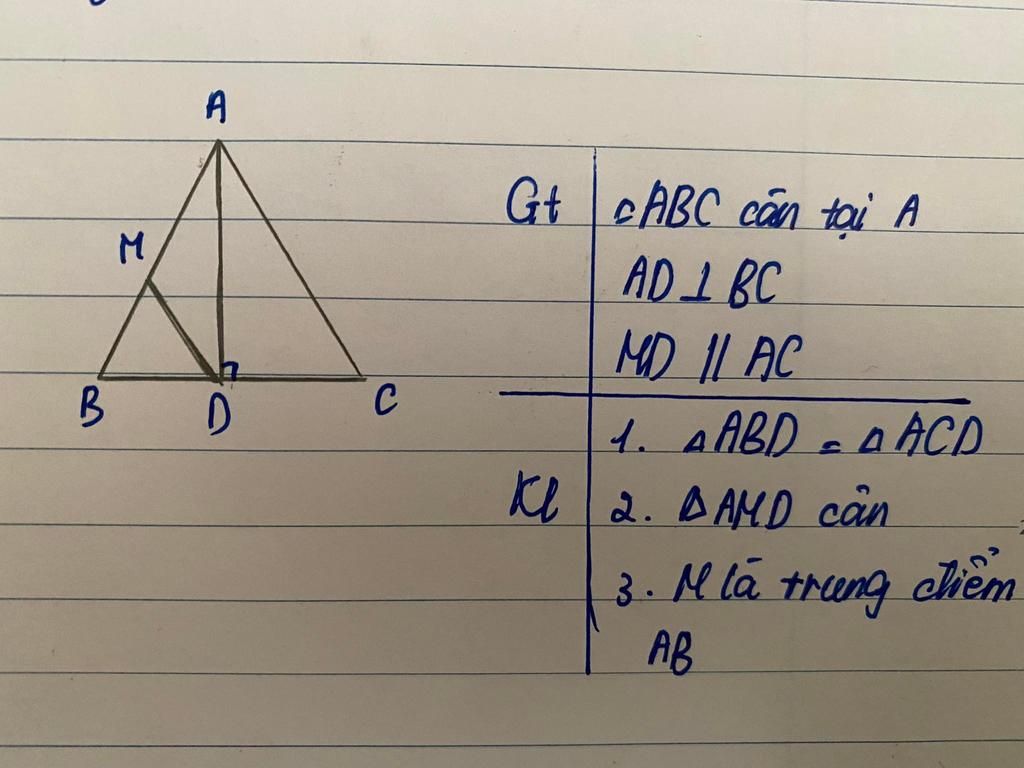 A
M
B
D
C
Gt
△ABC cân tại A
AD ⊥ BC
MD || AC
Kl
1. △ABD = △ACD
2. △AMD cân
3. M là trung điểm
AB